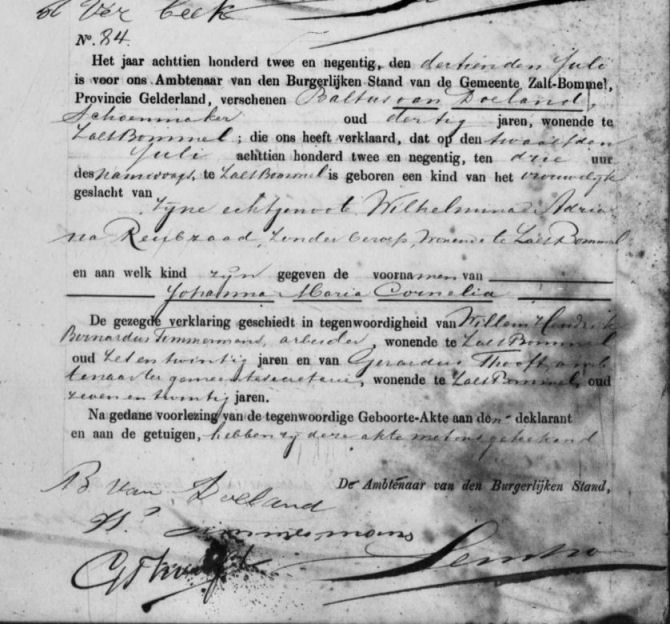 Ver Ceek
No. 84.
Het jaar achttien honderd twee en negentig, den dertienden Juli
is voor ons Ambtenaar van den Burgerlijken Stand van de Gemeente Zalt-Bommel,
Provincie Gelderland, verschenen Baltus van Doeland,
Schoenmaker oud dertig jaren, wonende te
ZaltBommel; die ons heeft verklaard, dat op den twaalfden
Juli achttien honderd twee en negentig, ten drie uur
des namiddags, te ZaltBommel is geboren een kind van het vrouwelijk
geslacht van
Zijne echtgenoot Wilhelmina Adria
na , zonder beroep, wonende te ZaltBommel
en aan welk kind zijn gegeven de voornamen van
Johanna Maria Cornelia
De gezegde verklaring geschiedt in tegenwoordigheid van Willem Hendrik
Bernardus Timmermans, arbeider, wonende te ZaltBommel
oud zes en twintig jaren en van Gerardus Thooft, amb
tenaar ter gemeentesecretarie, wonende te ZaltBommel, oud
zeven en twintig jaren.
Na gedane voorlezing van de tegenwoordige Geboorte-Akte aan den deklarant
en aan de getuigen, hebben zij deze akte met ons geteekend
De Ambtenaar van den Burgerlijken Stand,
B van Doeland
Timmermans